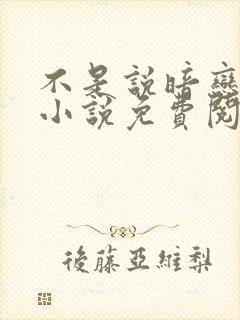 不是説暗戀
小說免費閱
後藤亞維梨